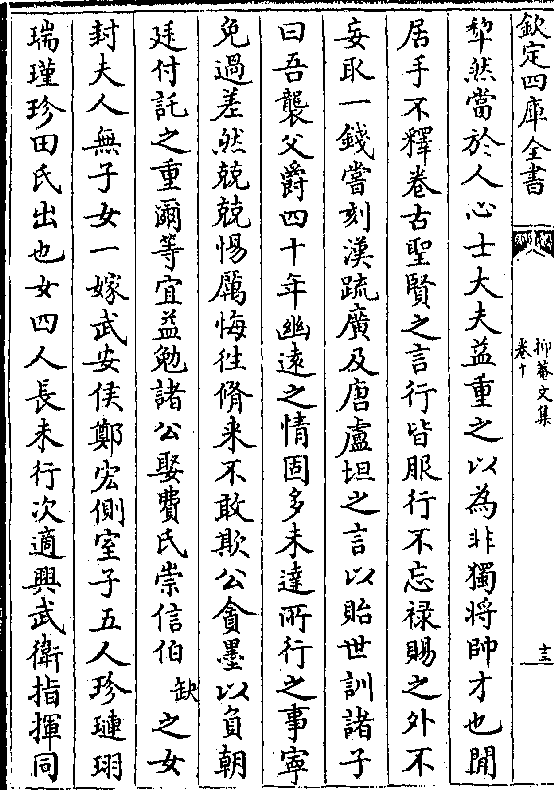 欽定四庫全書
抑菴文集
卷十
十三
犂然當於人心士大夫益重之以為非獨將帥才也閒
居手不釋卷古聖賢之言行皆服行不忘禄賜之外不
妄取一錢嘗刻漢疏廣及唐盧坦之言以貽世訓諸子
曰吾襲父爵四十年幽遠之情固多未達所行之事寧
免過差然兢兢惕厲悔往脩來不敢欺公貪墨以負朝
廷付託之重爾等宜益勉諸公娶費氏崇信伯缺之女
封夫人無子女一嫁武安侯鄭宏側室子五人珍璉珝
瑞瑾珍田氏出也女四人長未行次適興武衛指揮同